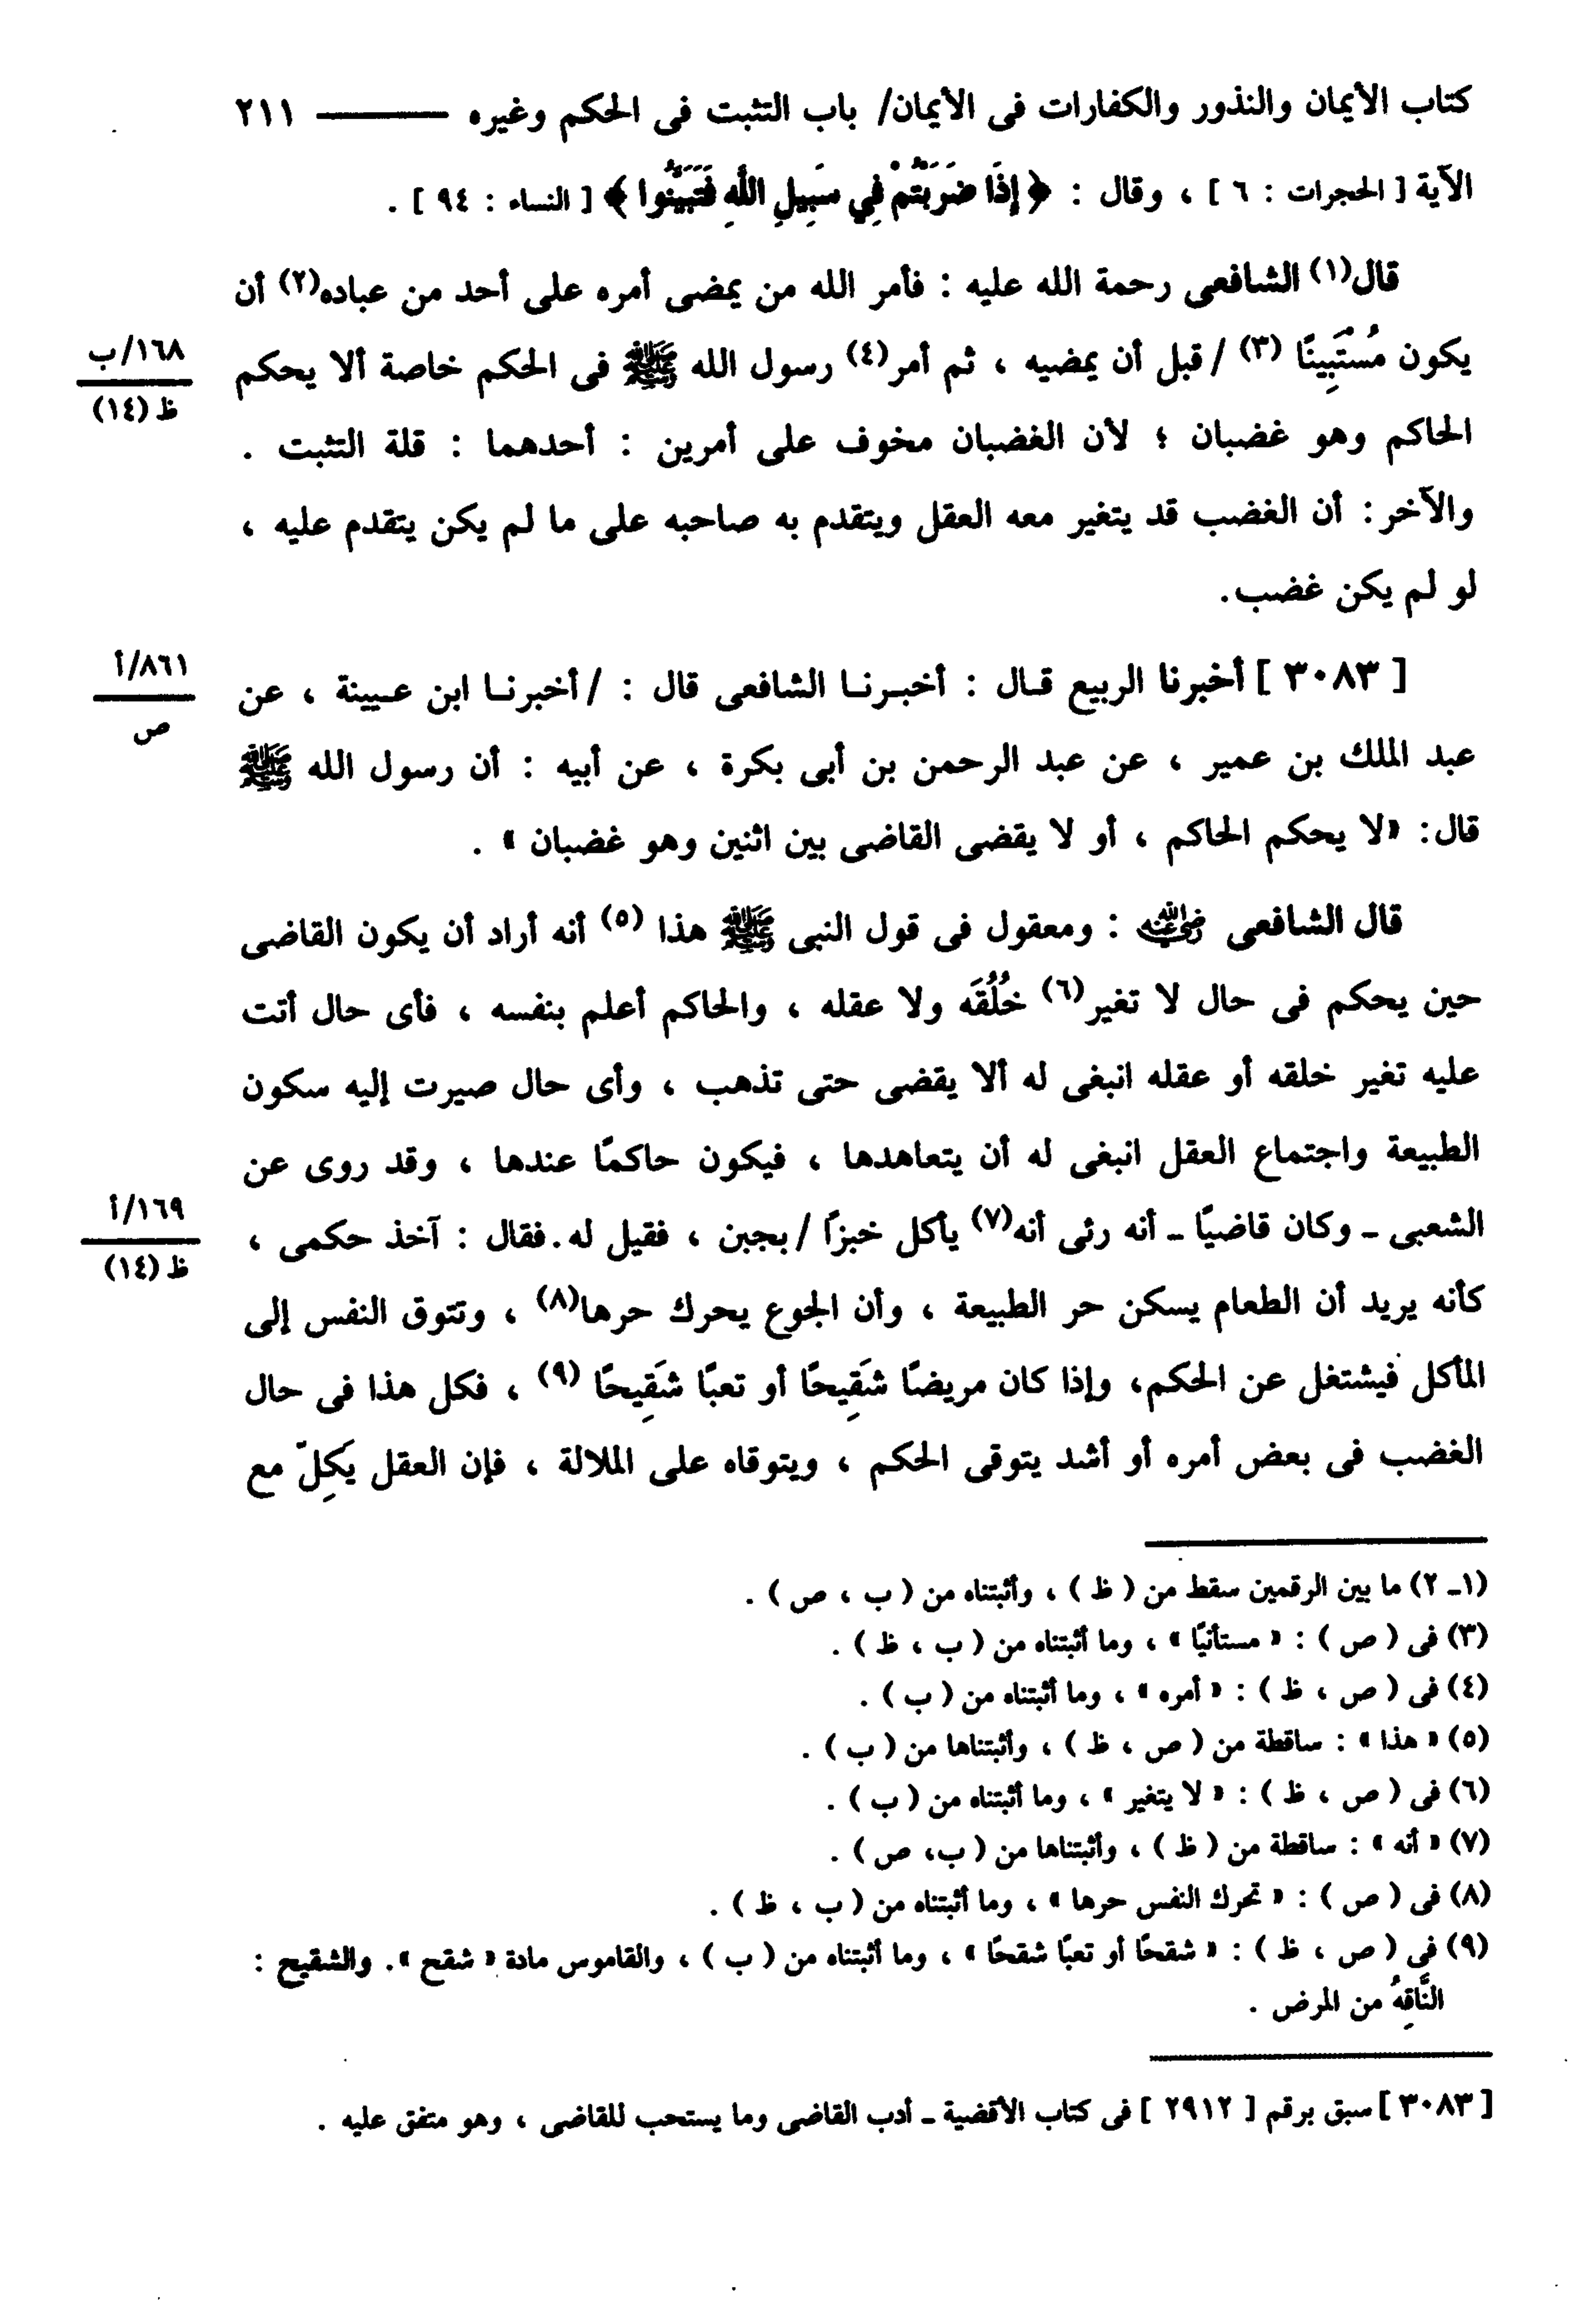 كتاب الأيمان والنذور والكفارات فى الأيمان/ باب التثبت فى الحكم وغيره ——— ٢١١
الآية [ الحجرات : ٦ ] ، وقال : ﴿ إِذَا ضَرَبْتُمْ فِي سَبِيلِ اللَّهِ فَتَبَيَّنُوا ﴾ [ النساء : ٩٤ ] .
قال(١) الشافعى رحمة الله عليه : فأمر الله من يمضى أمره على أحد من عباده(٢) أن
يكون مُسْتَبِينًا (٣) / قبل أن يمضيه ، ثم أمر(٤) رسول الله ﷺ فى الحكم خاصة ألا يحكم
١٦٨/ب
ظ (١٤)
الحاكم وهو غضبان ؛ لأن الغضبان مخوف على أمرين : أحدهما : قلة التثبت .
والآخر: أن الغضب قد يتغير معه العقل ويتقدم به صاحبه على ما لم يكن يتقدم عليه ،
لو لم يكن غضب.
[ ٣٠٨٣ ] أخبرنا الربيع قـال : أخبـرنـا الشافعى قال : /أخبرنـا ابن عـيينة ، عن
٨٦١/أ
ص
عبد الملك بن عمير ، عن عبد الرحمن بن أبى بكرة ، عن أبيه : أن رسول الله ﷺ
قال: «لا يحكم الحاكم ، أو لا يقضى القاضى بين اثنين وهو غضبان » .
قال الشافعى رضي الله عنه : ومعقول فى قول النبى ﷺ هذا (٥) أنه أراد أن يكون القاضى
حين يحكم فى حال لا تغير(٦) خُلُقَه ولا عقله ، والحاكم أعلم بنفسه ، فأى حال أتت
عليه تغير خلقه أو عقله انبغى له ألا يقضى حتى تذهب ، وأى حال صيرت إليه سكون
الطبيعة واجتماع العقل انبغى له أن يتعاهدها ، فيكون حاكمًا عندها ، وقد روى عن
الشعبى ـ وكان قاضيًا ـ أنه رئى أنه(٧) يأكل خبزًا /بجبن ، فقيل له.فقال : آخذ حكمى ،
١٦٩/أ
ظ (١٤)
كأنه يريد أن الطعام يسكن حر الطبيعة ، وأن الجوع يحرك حرها(٨) ، وتتوق النفس إلى
المأكل فيشتغل عن الحكم، وإذا كان مريضًا شَقِيحًا أو تعبًا شَقِيحًا (٩) ، فكل هذا فى حال
الغضب فى بعض أمره أو أشد يتوقى الحكم ، ويتوقاه على الملالة ، فإن العقل يَكِلّ مع
(١ـ ٢) ما بين الرقمين سقط من ( ظ ) ، وأثبتناه من ( ب ، ص ) .
(٣) فى ( ص ) : « مستأنيًا » ، وما أثبتناه من ( ب ، ظ ) .
(٤) فى ( ص ، ظ ) : « أمره » ، وما أثبتناه من ( ب ) .
(٥) « هذا » : ساقطة من ( ص ، ظ ) ، وأثبتناها من ( ب ) .
(٦) فى ( ص ، ظ ) : « لا يتغير » ، وما أثبتناه من ( ب ) .
(٧) « أنه » : ساقطة من ( ظ ) ، وأثبتناها من ( ب، ص ) .
(٨) فى ( ص ) : « تحرك النفس حرها » ، وما أثبتناه من ( ب ، ظ ) .
(٩) فى ( ص ، ظ ) : « شقحًا أو تعبًا شقحًا » ، وما أثبتناه من ( ب ) ، والقاموس مادة « شقح ». والشقيح :
النَّاقِهُ من المرض .
[ ٣٠٨٣ ] سبق برقم [ ٢٩١٢ ] فى كتاب الأقضية ـ أدب القاضى وما يستحب للقاضى ، وهو متفق عليه .